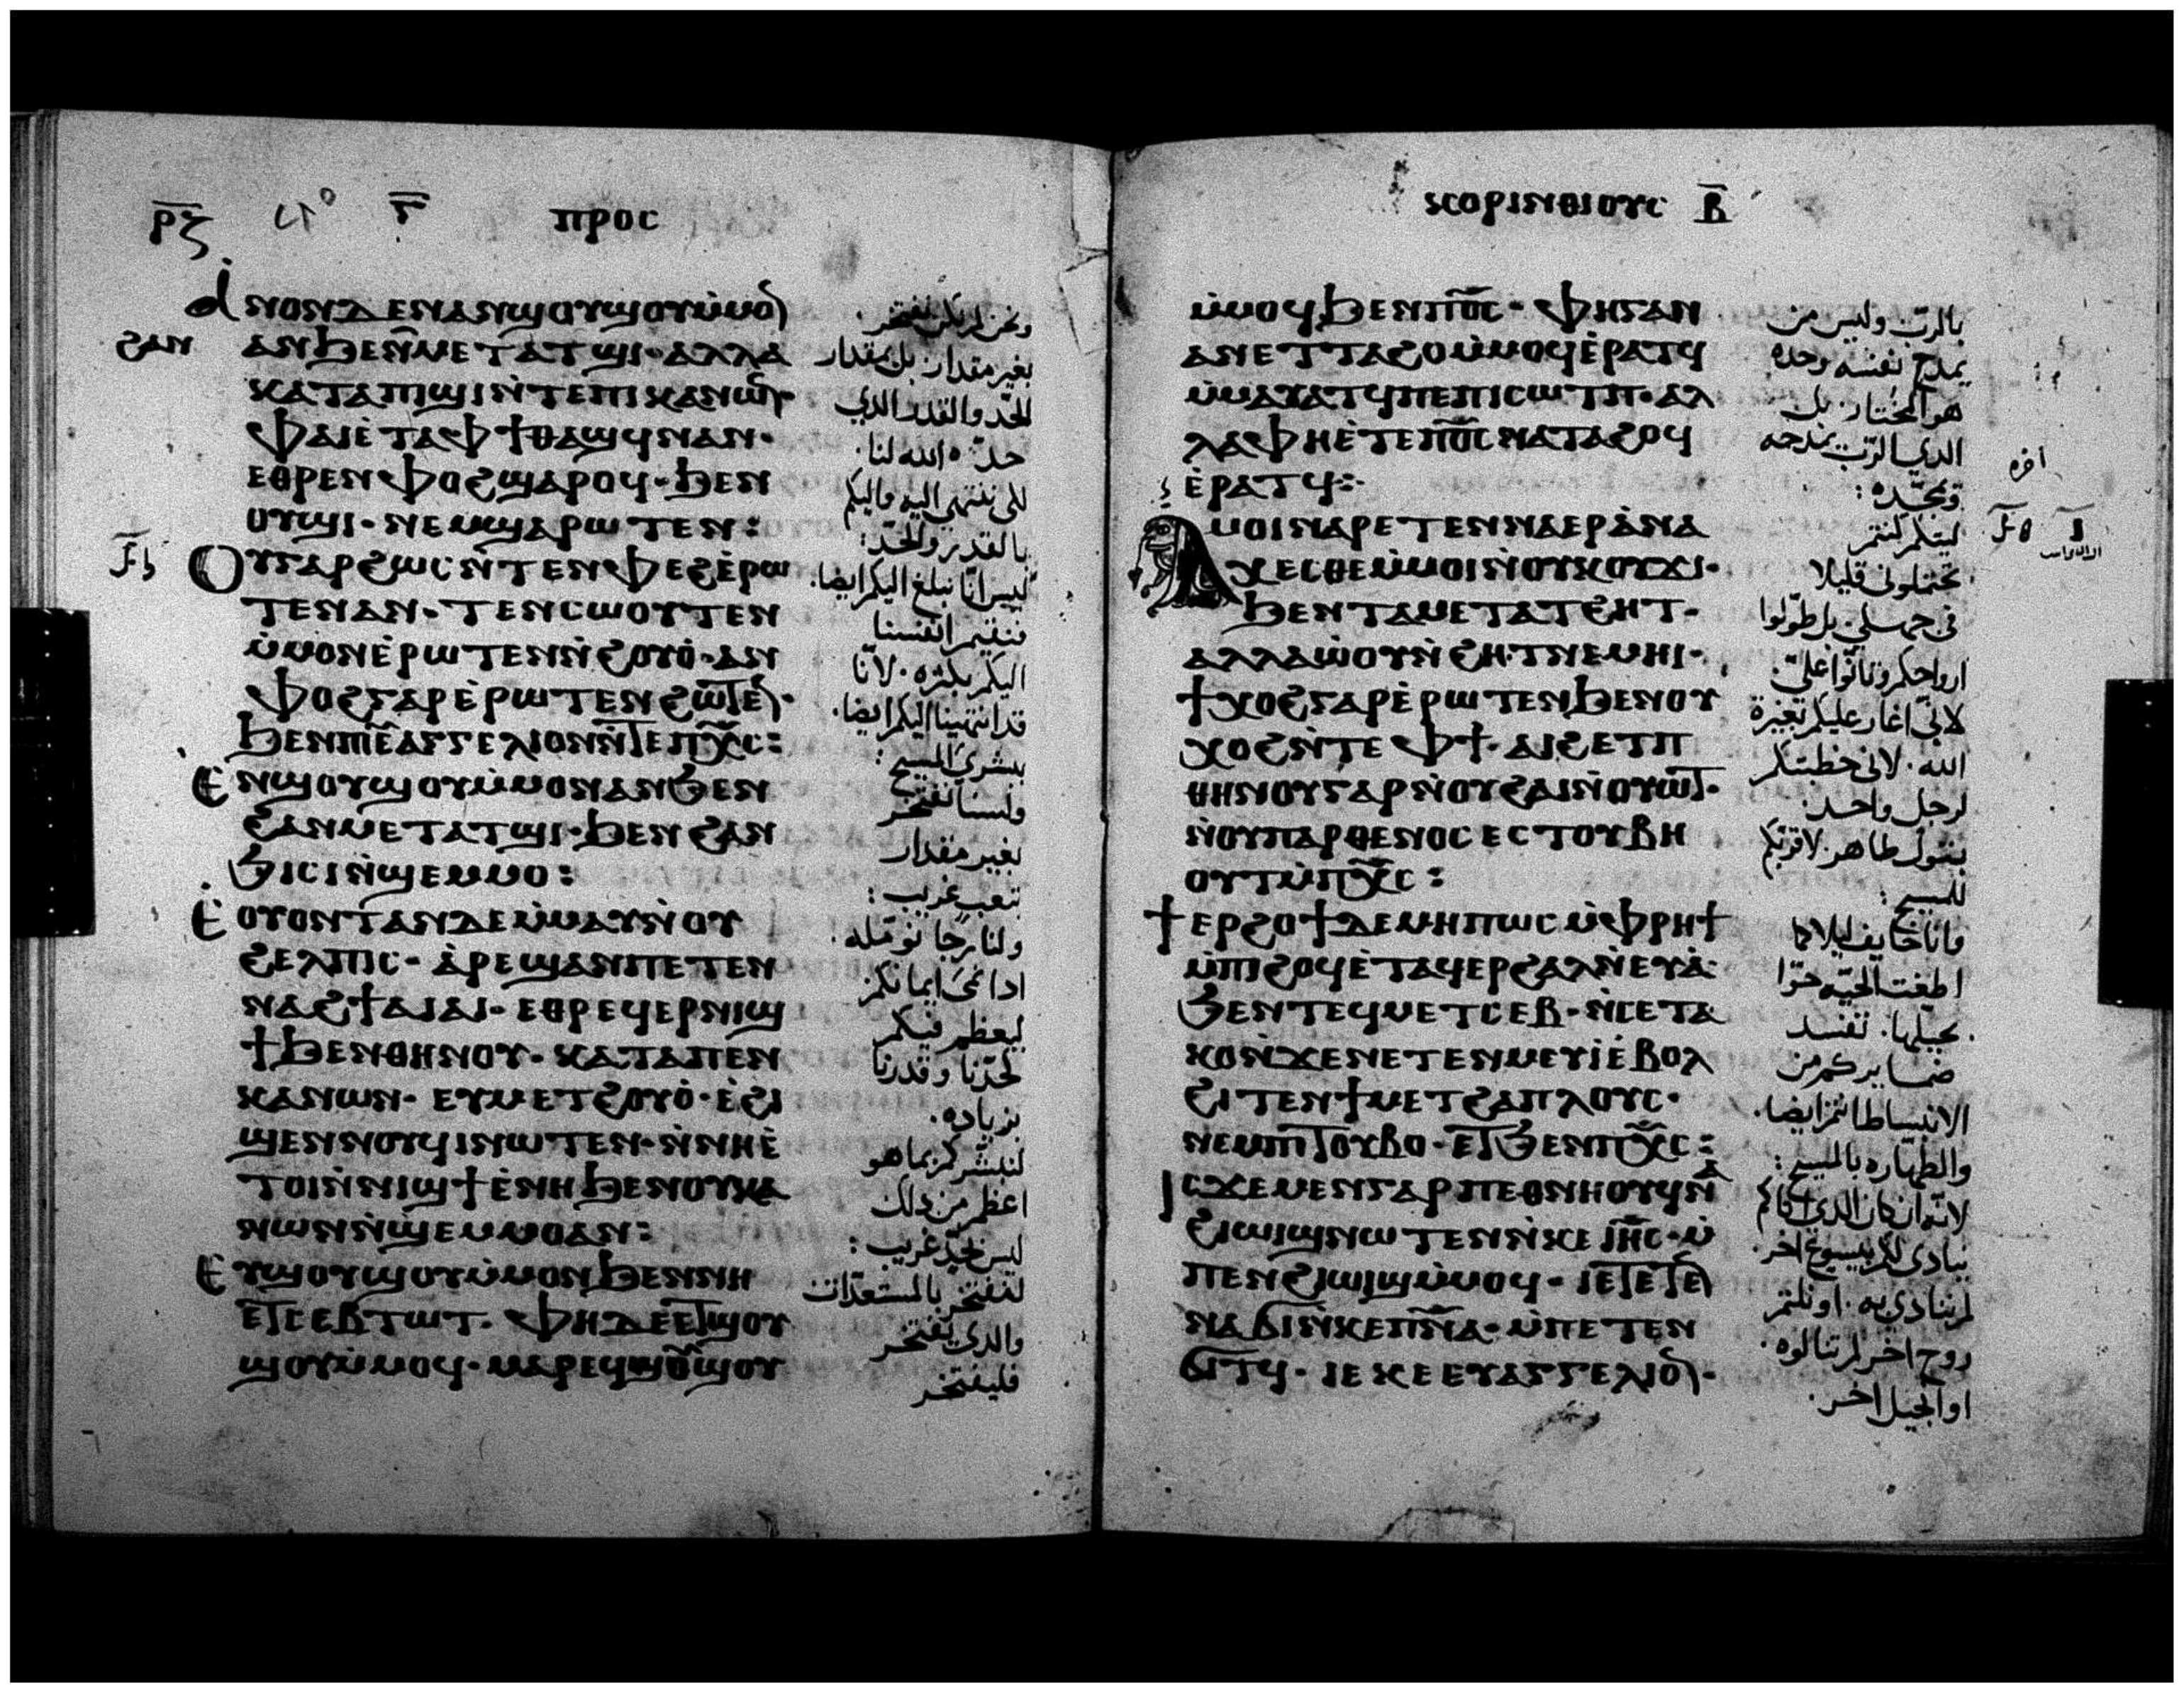 ⲣ̅ⲍ ⲅ̅ ⲡⲣⲟⲥ
ⲁ̀ⲛⲟⲛⲇⲉⲛⲁⲛϣⲟⲩϣⲟⲩⲙ̀ⲙⲟⲛ
ϩⲁⲛ ⲁⲛϧⲉⲛⲙⲉⲧⲁⲧϣⲓ· ⲁⲗⲗⲁ
ⲕⲁⲧⲁⲡϣⲓⲛ̀ⲧⲉⲡⲓⲕⲁⲛⲱⲛ·
ⲫⲁⲓⲉ̀ⲧⲁⲫϯⲑⲁϣϥⲛⲁⲛ·
ⲉⲑⲣⲉⲛⲫⲟϩϣⲁⲣⲟϥ· ϧⲉⲛ
ⲟⲩϣⲓ· ⲛⲉⲙϣⲁⲣⲱⲧⲉⲛ:
ⲟⲩⲅⲁⲣϩⲱⲥⲛ̀ⲧⲉⲛⲫⲉϩⲉ̀ⲣⲱ
ⲧⲉⲛⲁⲛ· ⲧⲉⲛⲥⲱⲟⲩⲧⲉⲛ
ⲙ̀ⲙⲟⲛⲉ̀ⲣⲱⲧⲉⲛⲛ̀ϩⲟⲩⲟ̀· ⲁⲛ
ⲫⲟϩⲅⲁⲣⲉ̀ⲣⲱⲧⲉⲛϩⲱⲧⲉⲛ·
ϧⲉⲛⲡⲓⲉⲩⲁⲅⲅⲉⲗⲓⲟⲛⲛ̀ⲧⲉⲡⲭ̅ⲥ:
ⲉⲛϣⲟⲩϣⲟⲩⲙ̀ⲙⲟⲛⲁⲛϧⲉⲛ
ϩⲁⲛⲙⲉⲧⲁⲧϣⲓ· ϧⲉⲛϩⲁⲛ
ϧⲓⲥⲓⲛ̀ϣⲉⲙⲙⲟ:
ⲉ̀ⲟⲩⲟⲛⲧⲁⲛⲇⲉⲙ̀ⲙⲁⲩⲛ̀ⲟⲩ
ϩⲉⲗⲡⲓⲥ· ⲁ̀ⲣⲉϣⲁⲛⲡⲉⲧⲉⲛ
ⲛⲁϩϯⲁⲓⲁⲓ· ⲉⲑⲣⲉϥⲉⲣⲛⲓϣ
ϯϧⲉⲛⲑⲏⲛⲟⲩ· ⲕⲁⲧⲁⲡⲉⲛ
ⲕⲁⲛⲱⲛ· ⲉⲩⲙⲉⲧϩⲟⲩⲟ̀· ⲉ̀ϩⲓ
ϣⲉⲛⲛⲟⲩϥⲓⲛⲱⲧⲉⲛ· ⲛ̀ⲛⲏⲉ̀
ⲧⲟⲓⲛ̀ⲛⲓϣϯⲉ̀ⲛⲏϧⲉⲛⲟⲩⲕⲁ
ⲛⲱⲛⲛ̀ϣⲉⲙⲙⲟⲁⲛ:
ⲉⲩϣⲟⲩϣⲟⲩⲙ̀ⲙⲟⲛϧⲉⲛⲛⲏ
ⲉⲧⲥⲉⲃⲧⲱⲧ· ⲫⲏⲇⲉⲉⲧϣⲟⲩ
ϣⲟⲩⲙ̀ⲙⲟϥ· ⲙⲁⲣⲉϥϣⲟⲩϣⲟⲩ
ونحن لم نكن نفتخر
بغير مقدار بل بمقدار
الحد والقدر الدي
حدّه الله لنا
لكي ننتهي اليه واليكم
بالقدر والحدّ:
ليس انّا نبلغ اليكم ايضا
فنقيم انفسنا
اليكم بكثره. لانّا
قد انتهينا اليكم ايضا.
ببشرى المسيح:
ولسنا نفتخر
بغير مقدار
بتعب غريب:
ولنا رجا نومله.
ادا نمى ايمانكم
ليعظم فيكم
لحدّنا وقدرنا
بزياده.
لنبشركم بما هو
اعظم من دلك
ليس بحد غريب:
لنفتخر بالمستعدّات
والدي يفتخر
فليفتخر
ⲕⲟⲣⲓⲛⲑⲓⲟⲩⲥ ⲃ̅
ⲙ̀ⲙⲟϥϧⲉⲛⲡⲟ̅ⲥ· ⲫⲏⲅⲁⲣ
ⲁⲛⲉⲧⲧⲁϩⲟⲙ̀ⲙⲟϥⲉ̀ⲣⲁⲧϥ
ⲙ̀ⲙⲁⲩⲁⲧϥⲡⲉⲡⲓⲥⲱⲧⲡ· ⲁⲗ
ⲗⲁⲫⲏⲉ̀ⲧⲉⲡⲟ̅ⲥⲛⲁⲧⲁϩⲟϥ
ⲉ̀ⲣⲁⲧϥ:
ⲁⲙⲟⲓⲛⲁⲣⲉⲧⲉⲛⲛⲁⲉⲣⲁ̀ⲛⲁ
ⲭⲉⲥⲑⲉⲙ̀ⲙⲟⲓⲛ̀ⲟⲩⲕⲟⲩϫⲓ·
ϧⲉⲛⲧⲁⲙⲉⲧⲁⲧϩⲏⲧ·
ⲁⲗⲗⲁⲱ̀ⲟⲩⲛ̀ϩⲏⲧⲛⲉⲙⲏⲓ·
ϯⲭⲟϩⲅⲁⲣⲉ̀ⲣⲱⲧⲉⲛϧⲉⲛⲟⲩ
ⲭⲟϩⲛ̀ⲧⲉⲫϯ· ⲁⲓϩⲉⲧⲡ
ⲑⲏⲛⲟⲩⲅⲁⲣⲛ̀ⲟⲩϩⲁⲓⲛ̀ⲟⲩⲱⲧ·
ⲛ̀ⲟⲩⲡⲁⲣⲑⲉⲛⲟⲥⲉⲥⲧⲟⲩⲃⲏ
ⲟⲩⲧⲙ̀ⲡⲭ̅ⲥ:
ϯⲉⲣϩⲟϯⲇⲉⲙⲏⲡⲱⲥⲙ̀ⲫⲣⲏϯ
ⲙ̀ⲡⲓϩⲟϥⲉ̀ⲧⲁϥⲉⲣϩⲁⲗⲛ̀ⲉⲩⲁ̀·
ϧⲉⲛⲧⲉϥⲙⲉⲧⲥⲉⲃ· ⲛ̀ⲥⲉⲧⲁ
ⲕⲟⲛ̀ϫⲉⲛⲉⲧⲉⲛⲙⲉⲩⲓⲉ̀ⲃⲟⲗ
ϩⲓⲧⲉⲛϯⲙⲉⲧϩⲁⲡⲗⲟⲩⲥ·
ⲛⲉⲙⲡⲓⲧⲟⲩⲃⲟ· ⲉⲧϧⲉⲛⲡⲭ̅ⲥ:
ⲓⲥϫⲉⲙⲉⲛⲅⲁⲣⲡⲉⲑⲛⲏⲟⲩϥⲛⲁ
ϩⲓⲱⲓϣⲛⲱⲧⲉⲛⲛ̀ⲕⲉⲓⲏ̅ⲥ· ⲙ̀
ⲡⲉⲛϩⲓⲱⲓϣⲙ̀ⲙⲟϥ· ⲓⲉⲧⲉⲧⲉⲛ
ⲛⲁϭⲓⲛ̀ⲕⲉⲡⲛ̅ⲁ· ⲙ̀ⲡⲉⲧⲉⲛ
ϭⲓⲧϥ· ⲓⲉⲕⲉⲉⲩⲁⲅⲅⲉⲗⲓⲟⲛ·
بالربّ وليس من
يمدح نفسه وحده
هو المختار بل
الدي الربّ يمدحه
ويمجّده:
ليتكم كنتم
تحتملوني قليلا
في جهلي. بل طوّلوا
ارواحكم وتانّوا عليّ.
لاني اغار عليكم بغيرة
الله. لاني خطبتكم
لرجل واحد.
بتول طاهر لاقربكم
للمسيح:
وانا خايف ليلا كما
اطغت الحيّه حوّا
بحيلها. تفسد
ضمايركم من
الانبساطا ثم ايضا.
والطهاره بالمسيح:
لانّه ان كان الدي اتاكم
ينادى لكم بيسوع اخر.
لم ننادى به. او نلتم
روح اخر لم تنالوه.
او انجيل اخر.